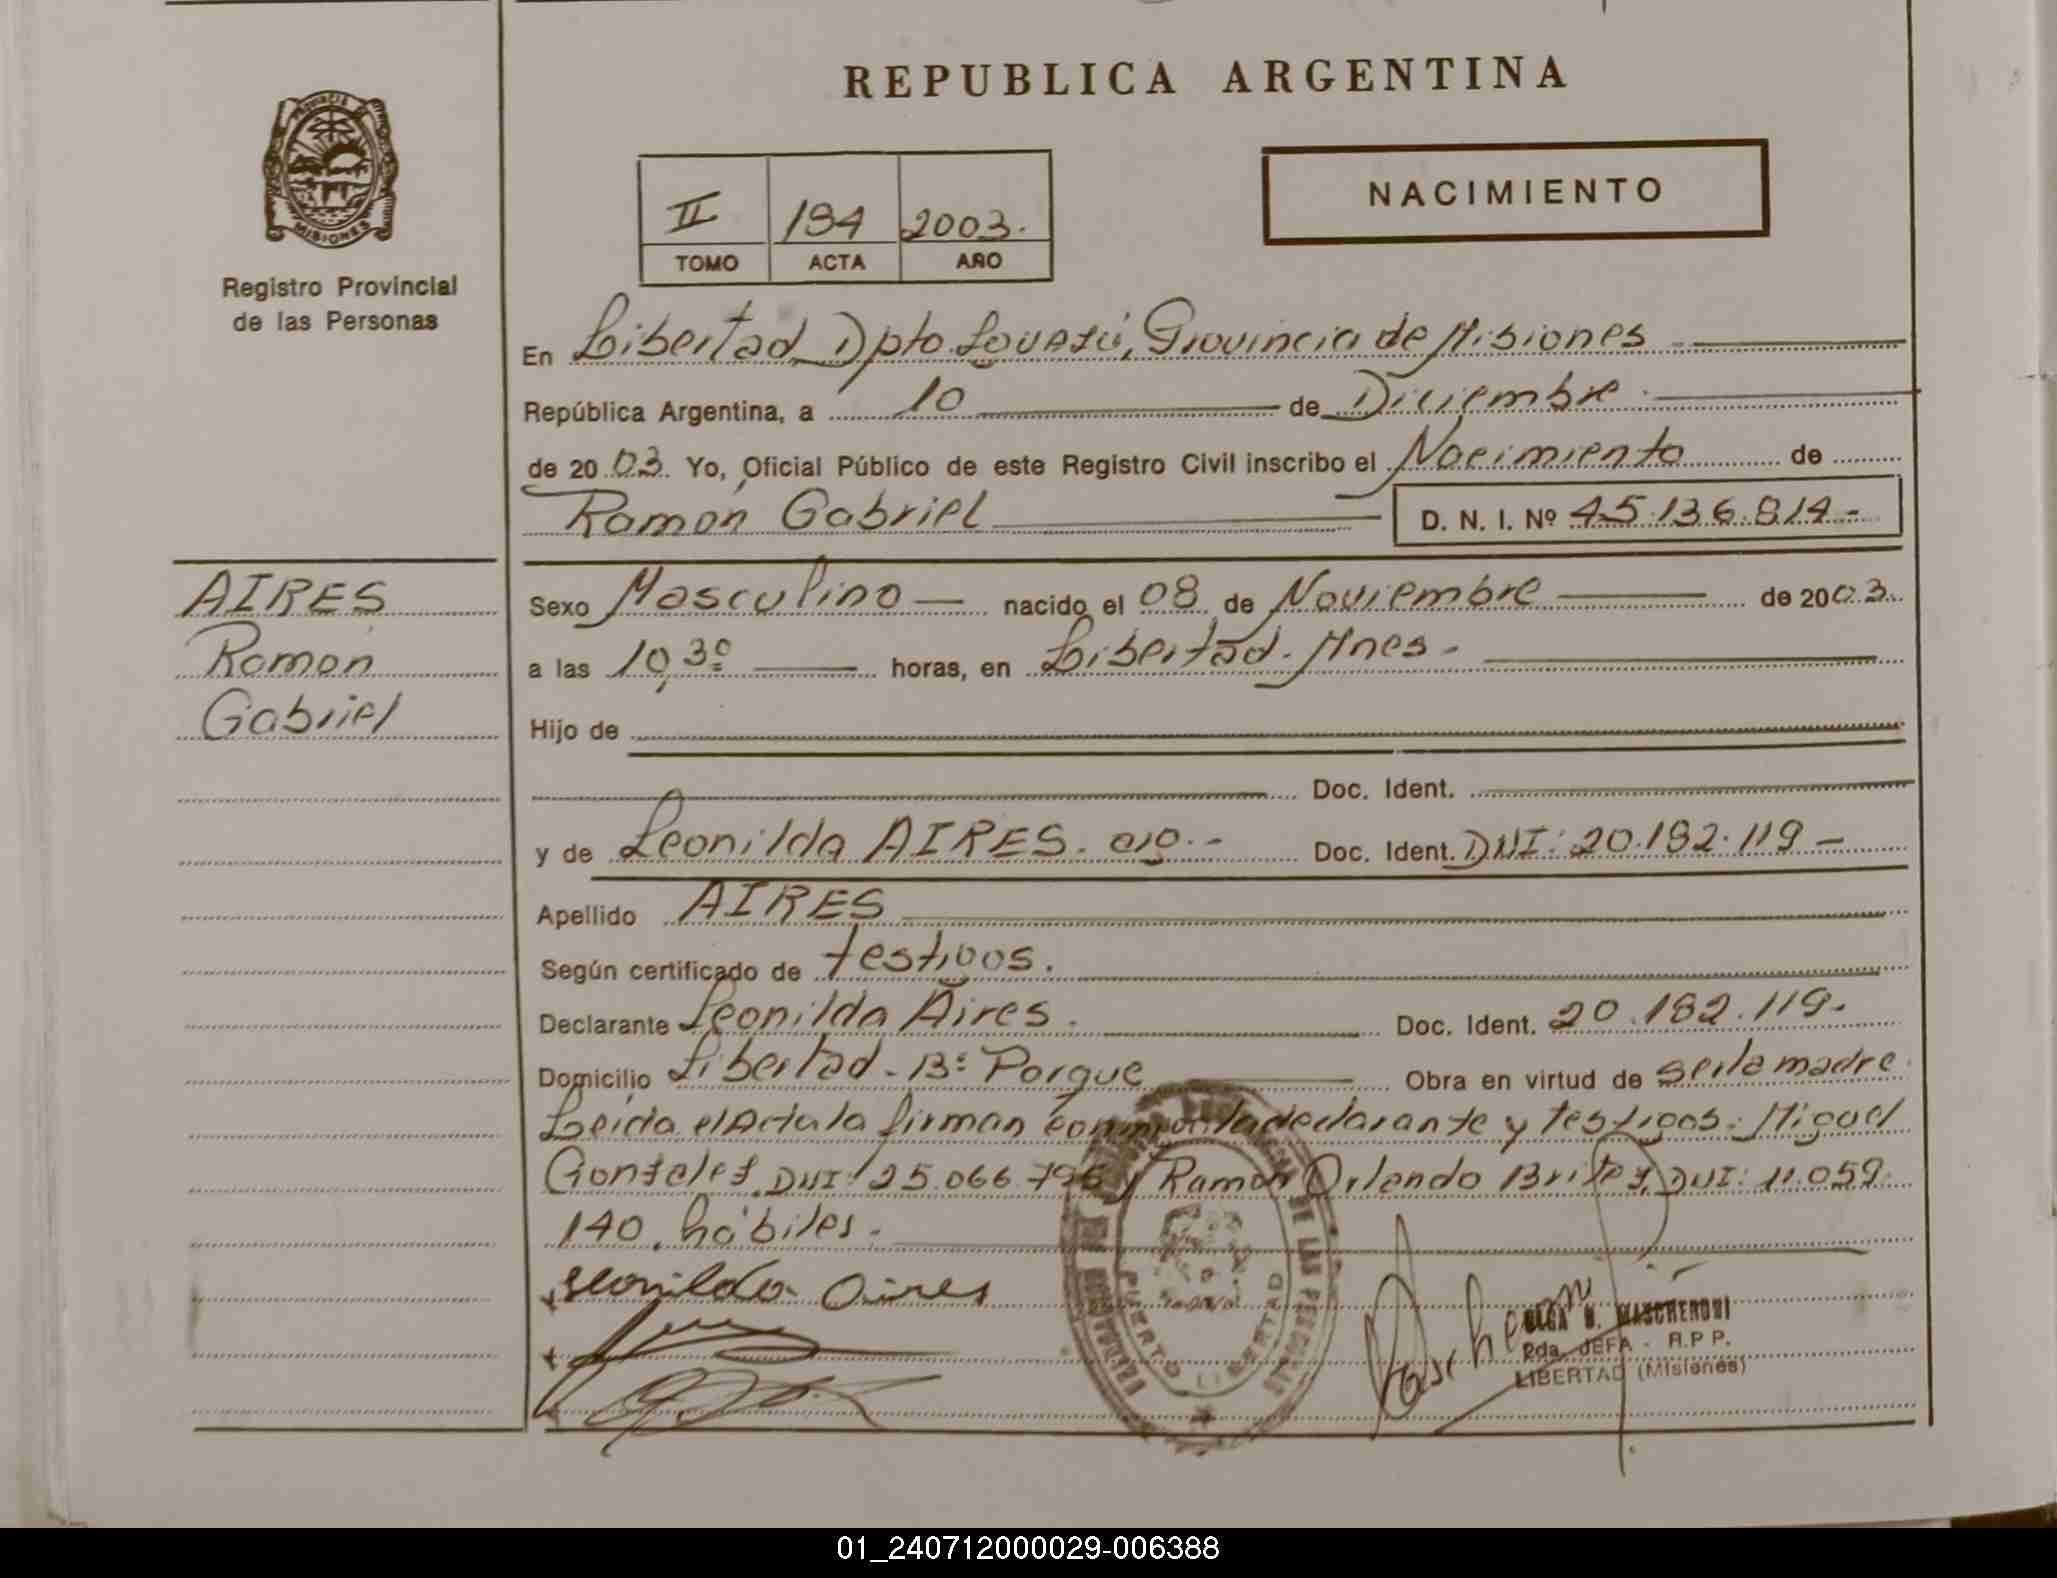 REPUBLICA ARGENTINA
PROVINCIA DE
MISIONES
Registro Provincial
de las Personas
II 194 2003.
TOMO ACTA AÑO
NACIMIENTO
En Libertad Dpto. Iguazú, Provincia de Misiones
República Argentina, a 10 de Diciembre
de 2003. Yo, Oficial Público de este Registro Civil inscribo el Nacimiento de
Ramón Gabriel D. N. I. Nº 45.136.814-
AIRES
Ramon
Gabriel
Sexo Masculino nacido el 08 de Noviembre de 2003.
a las 10,30 horas, en Libertad. Mnes.
Hijo de
Doc. Ident.
y de Leonilda AIRES. arg.- Doc. Ident. DNI: 20.182.119-
Apellido AIRES
Según certificado de testigos.
Declarante Leonilda Aires. Doc. Ident. 20.182.119.
Domicilio Libertad - Bº Parque Obra en virtud de ser la madre
Leída el Acta la firman conmigo la declarante y testigos: Miguel
Gonzalez DNI: 25.066.796 y Ramón Orlando Britez, DNI: 11.059.
140. hábiles.
Leonilda Aires
DE LAS PERSONAS
PUERTO LIBERTAD
OLGA MASCHERONI
JEFA - R.P.P.
LIBERTAD (Misiones)
01_240712000029-006388